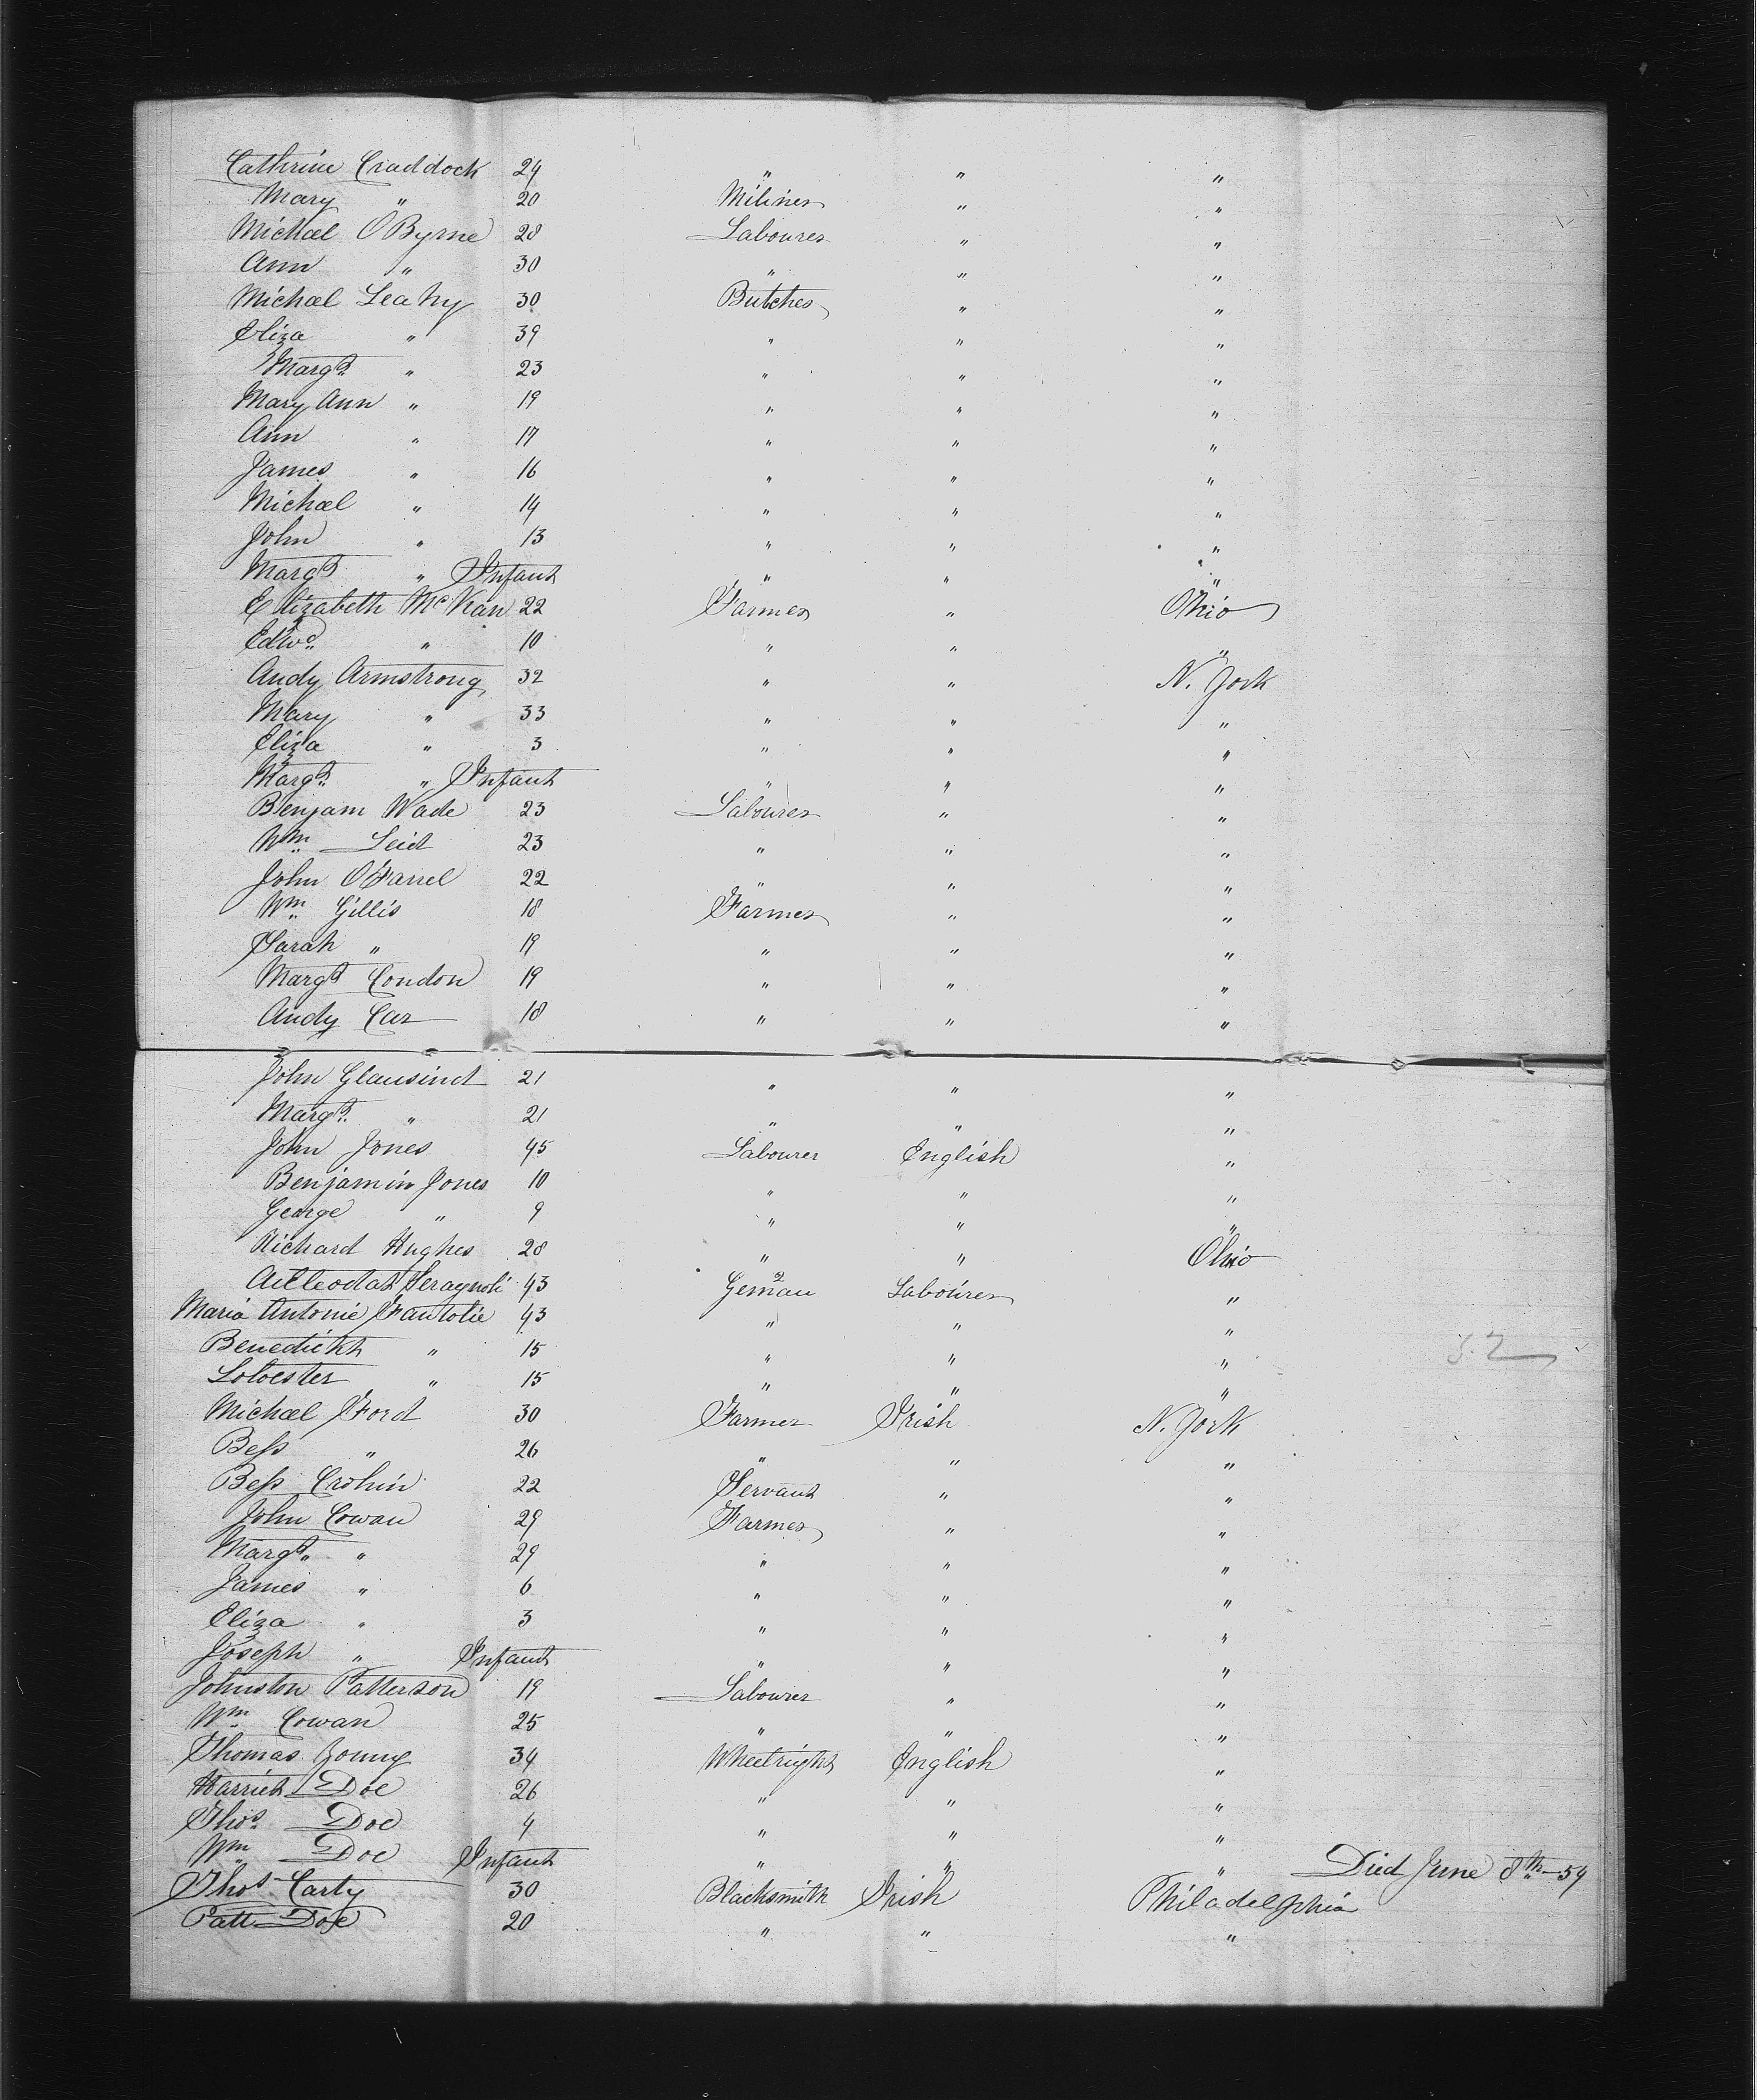 Cathrine Craddock 24 " " "
Mary " 20 Miliner " "
Michael O'Byrne 28 Labourer " "
Ann " 30 " " "
Michael Leahy 30 Butcher " "
Eliza " 39 " " "
Margt " 23 " " "
Mary Ann " 19 " " "
Ann " 17 " " "
James " 16 " " "
Michael " 14 " " "
John " 13 " " "
Margt " Infant " " "
Elizabeth McKan 22 Farmer " Ohio
Edwd " 10 " " "
Andy Armstrong 32 " " N. York
Mary " 33 " " "
Eliza " 3 " " "
Margt " Infant " " "
Benjam Wade 23 Labourer " "
Wm Leid 23 " " "
John O'Farrel 22 " " "
Wm Gillis 18 Farmer " "
Sarah " 19 " " "
Margt Condon 19 " " "
Andy Car 18 " " "
John Glausind 21 " " "
Margt " 21 " " "
John Jones 45 Labourer English "
Benjamin Jones 10 " " "
George " 9 " " "
Richard Hughes 28 " " Ohio
43 Geman Labourer "
Maria Antonie Fautolie 43 " " "
Benedickt " 15 " " "
Lolvester " 15 " " "
Michael Ford 30 Farmer Irish N. York
Bess " 26 " " "
Bess Crohin 22 Servant " "
John Cowan 29 Farmer " "
Margt " 29 " " "
James " 6 " " "
Eliza " 3 " " "
Joseph " Infant " " "
Johnston Patterson 19 Labourer " "
Wm Cowan 25 " " "
Thomas Young 34 Wheelright English "
Harriet Doe 26 " " "
Thos Doe 4 " " "
Wm Doe Infant " " " Died June 8th 54
Thos Carty 30 Blacksmith Irish Philadelphia
Patt Doe 20 " " "